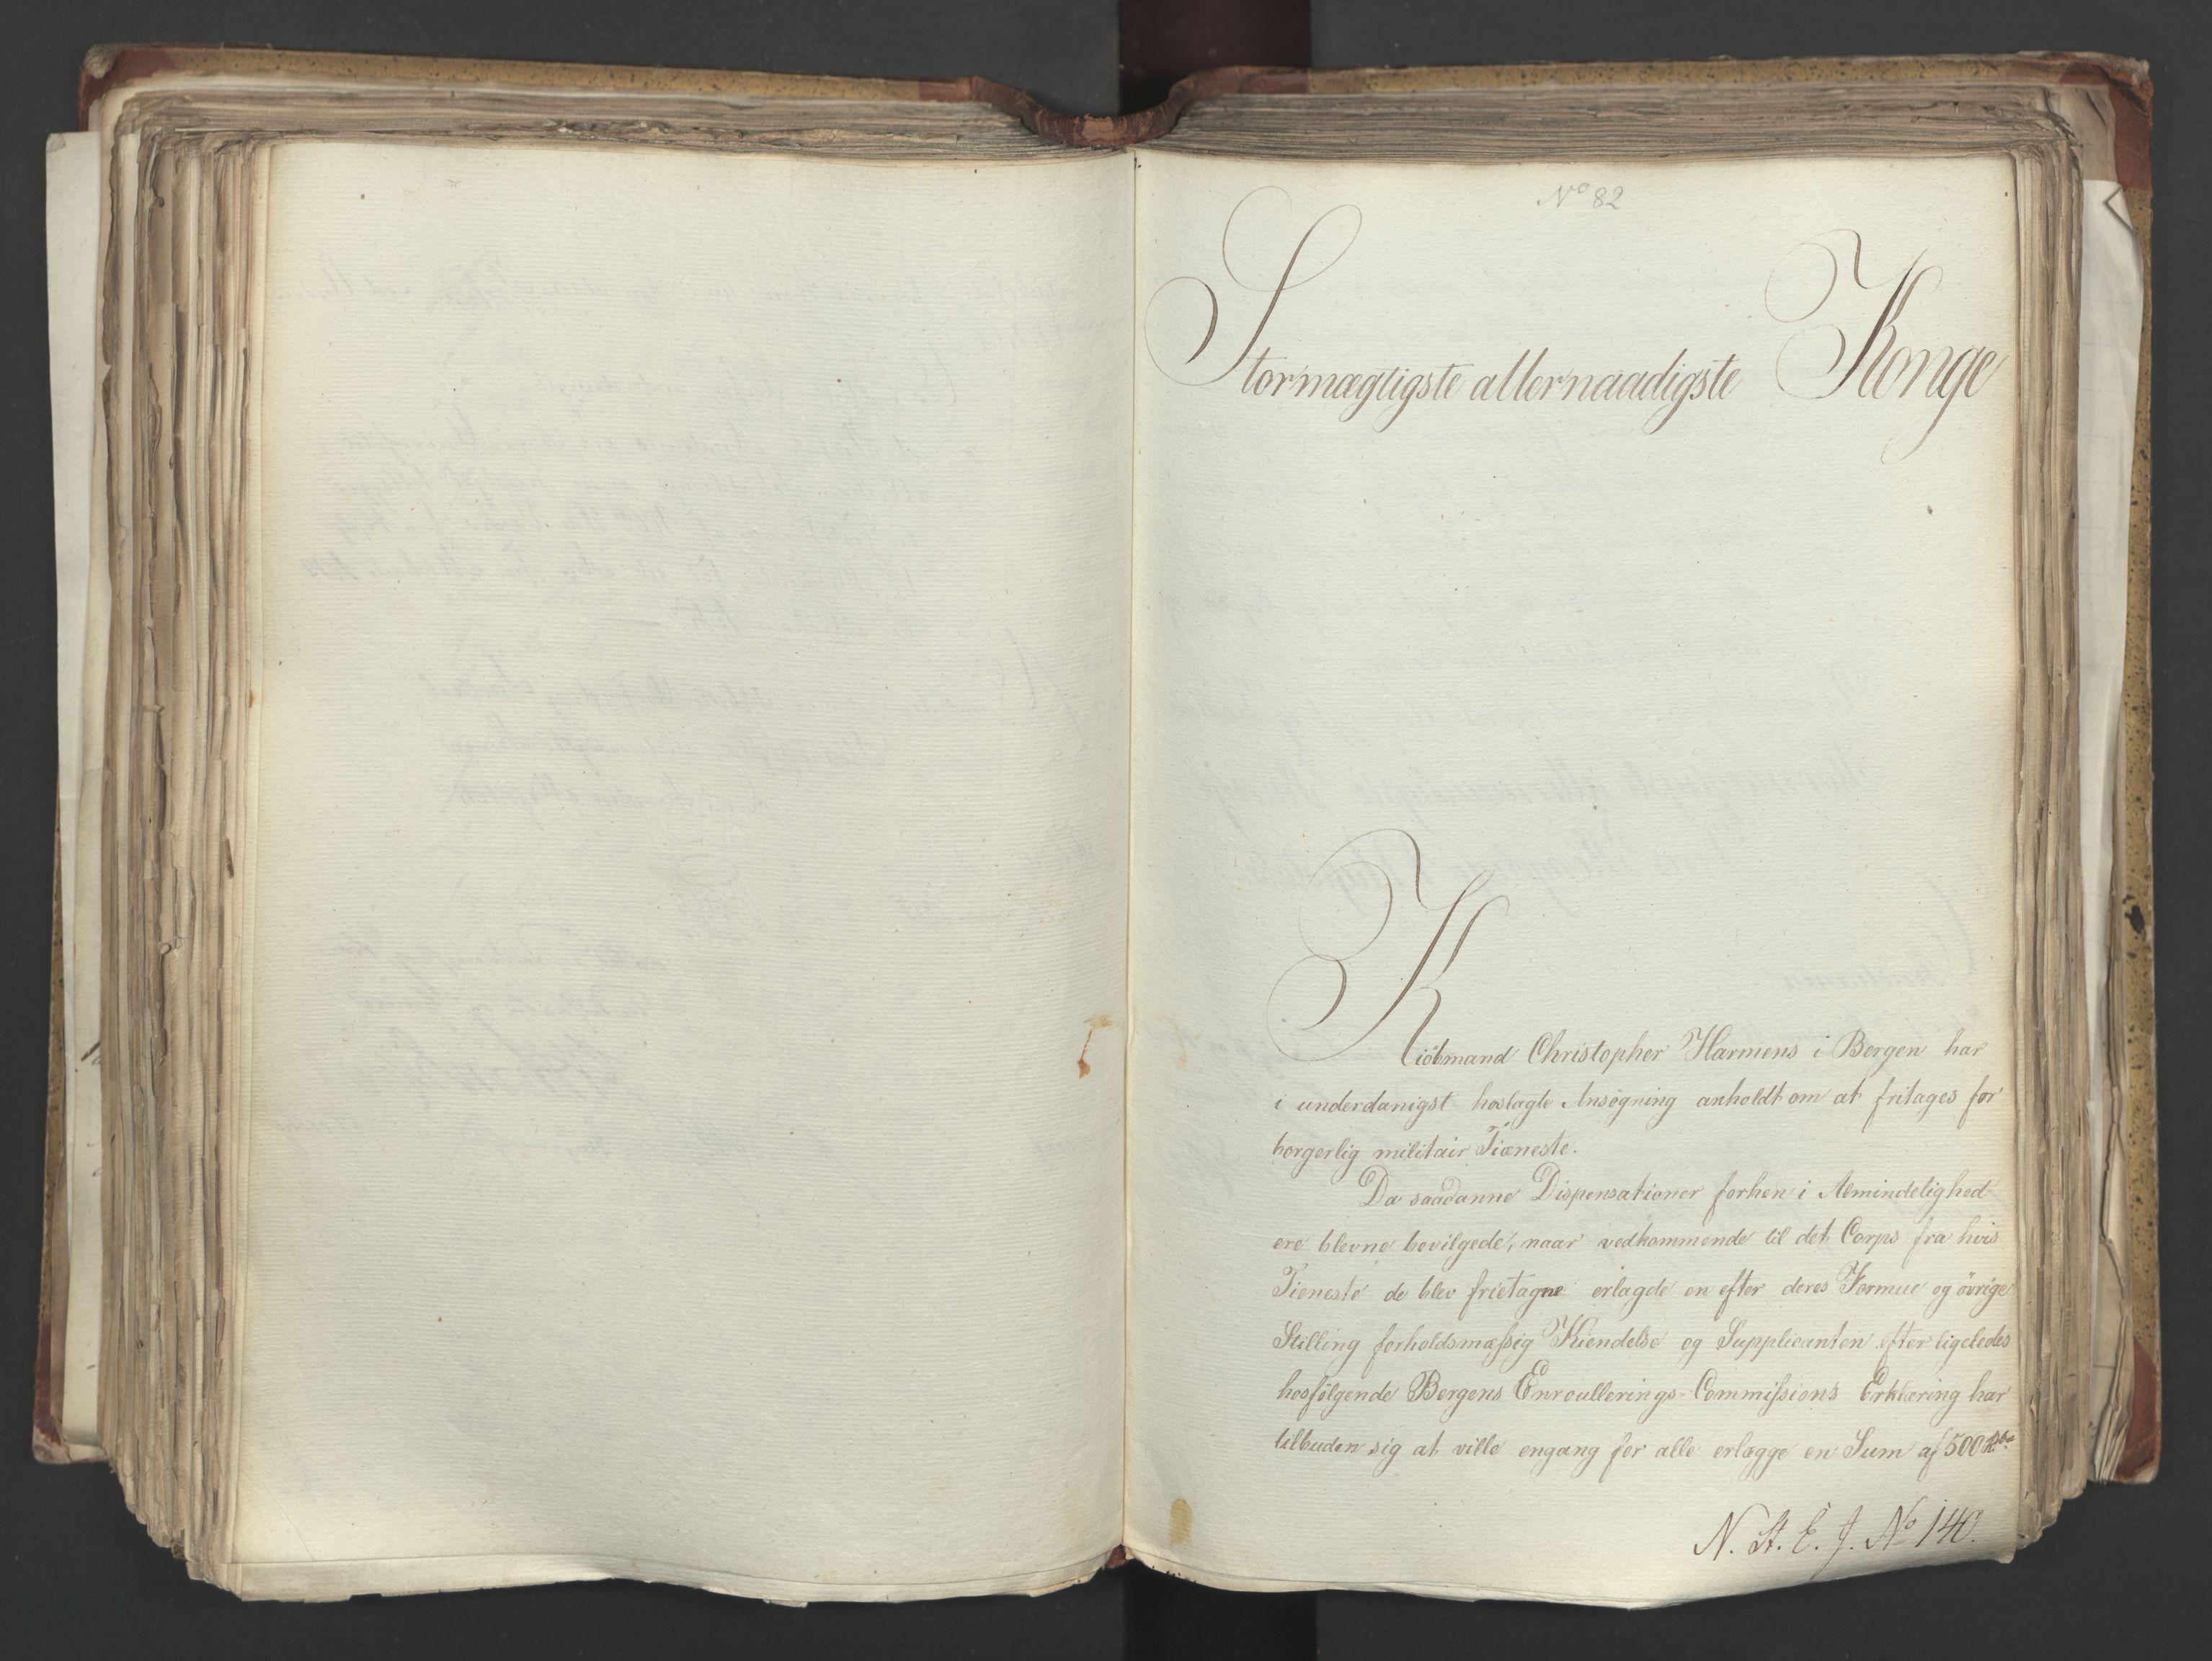 No 82
Stormægtigste allernaadigste Konge
Kiöbmand Christopher Harmens i Bergen har
i underdanigst hoslagte Ansøgning anholdt om at fritages for
borgerlig militair Tieneste.
Da saadanne Dispensationer forhen i Almindelighed
ere blevne bevilgede, naar vedkommende til det Corps fra hvis
Tieneste de blev frietagne erlagde en efter deres Formue og övrige
Stilling forholdsmæssig Kiendelse og Supplicanten efter ligeledes
hosfølgende Bergens Enroullerings-Commissions Erklæring har
tilbuden sig at ville engang for alle erlægge en Sum af 500
N. St. E. J. No 140.